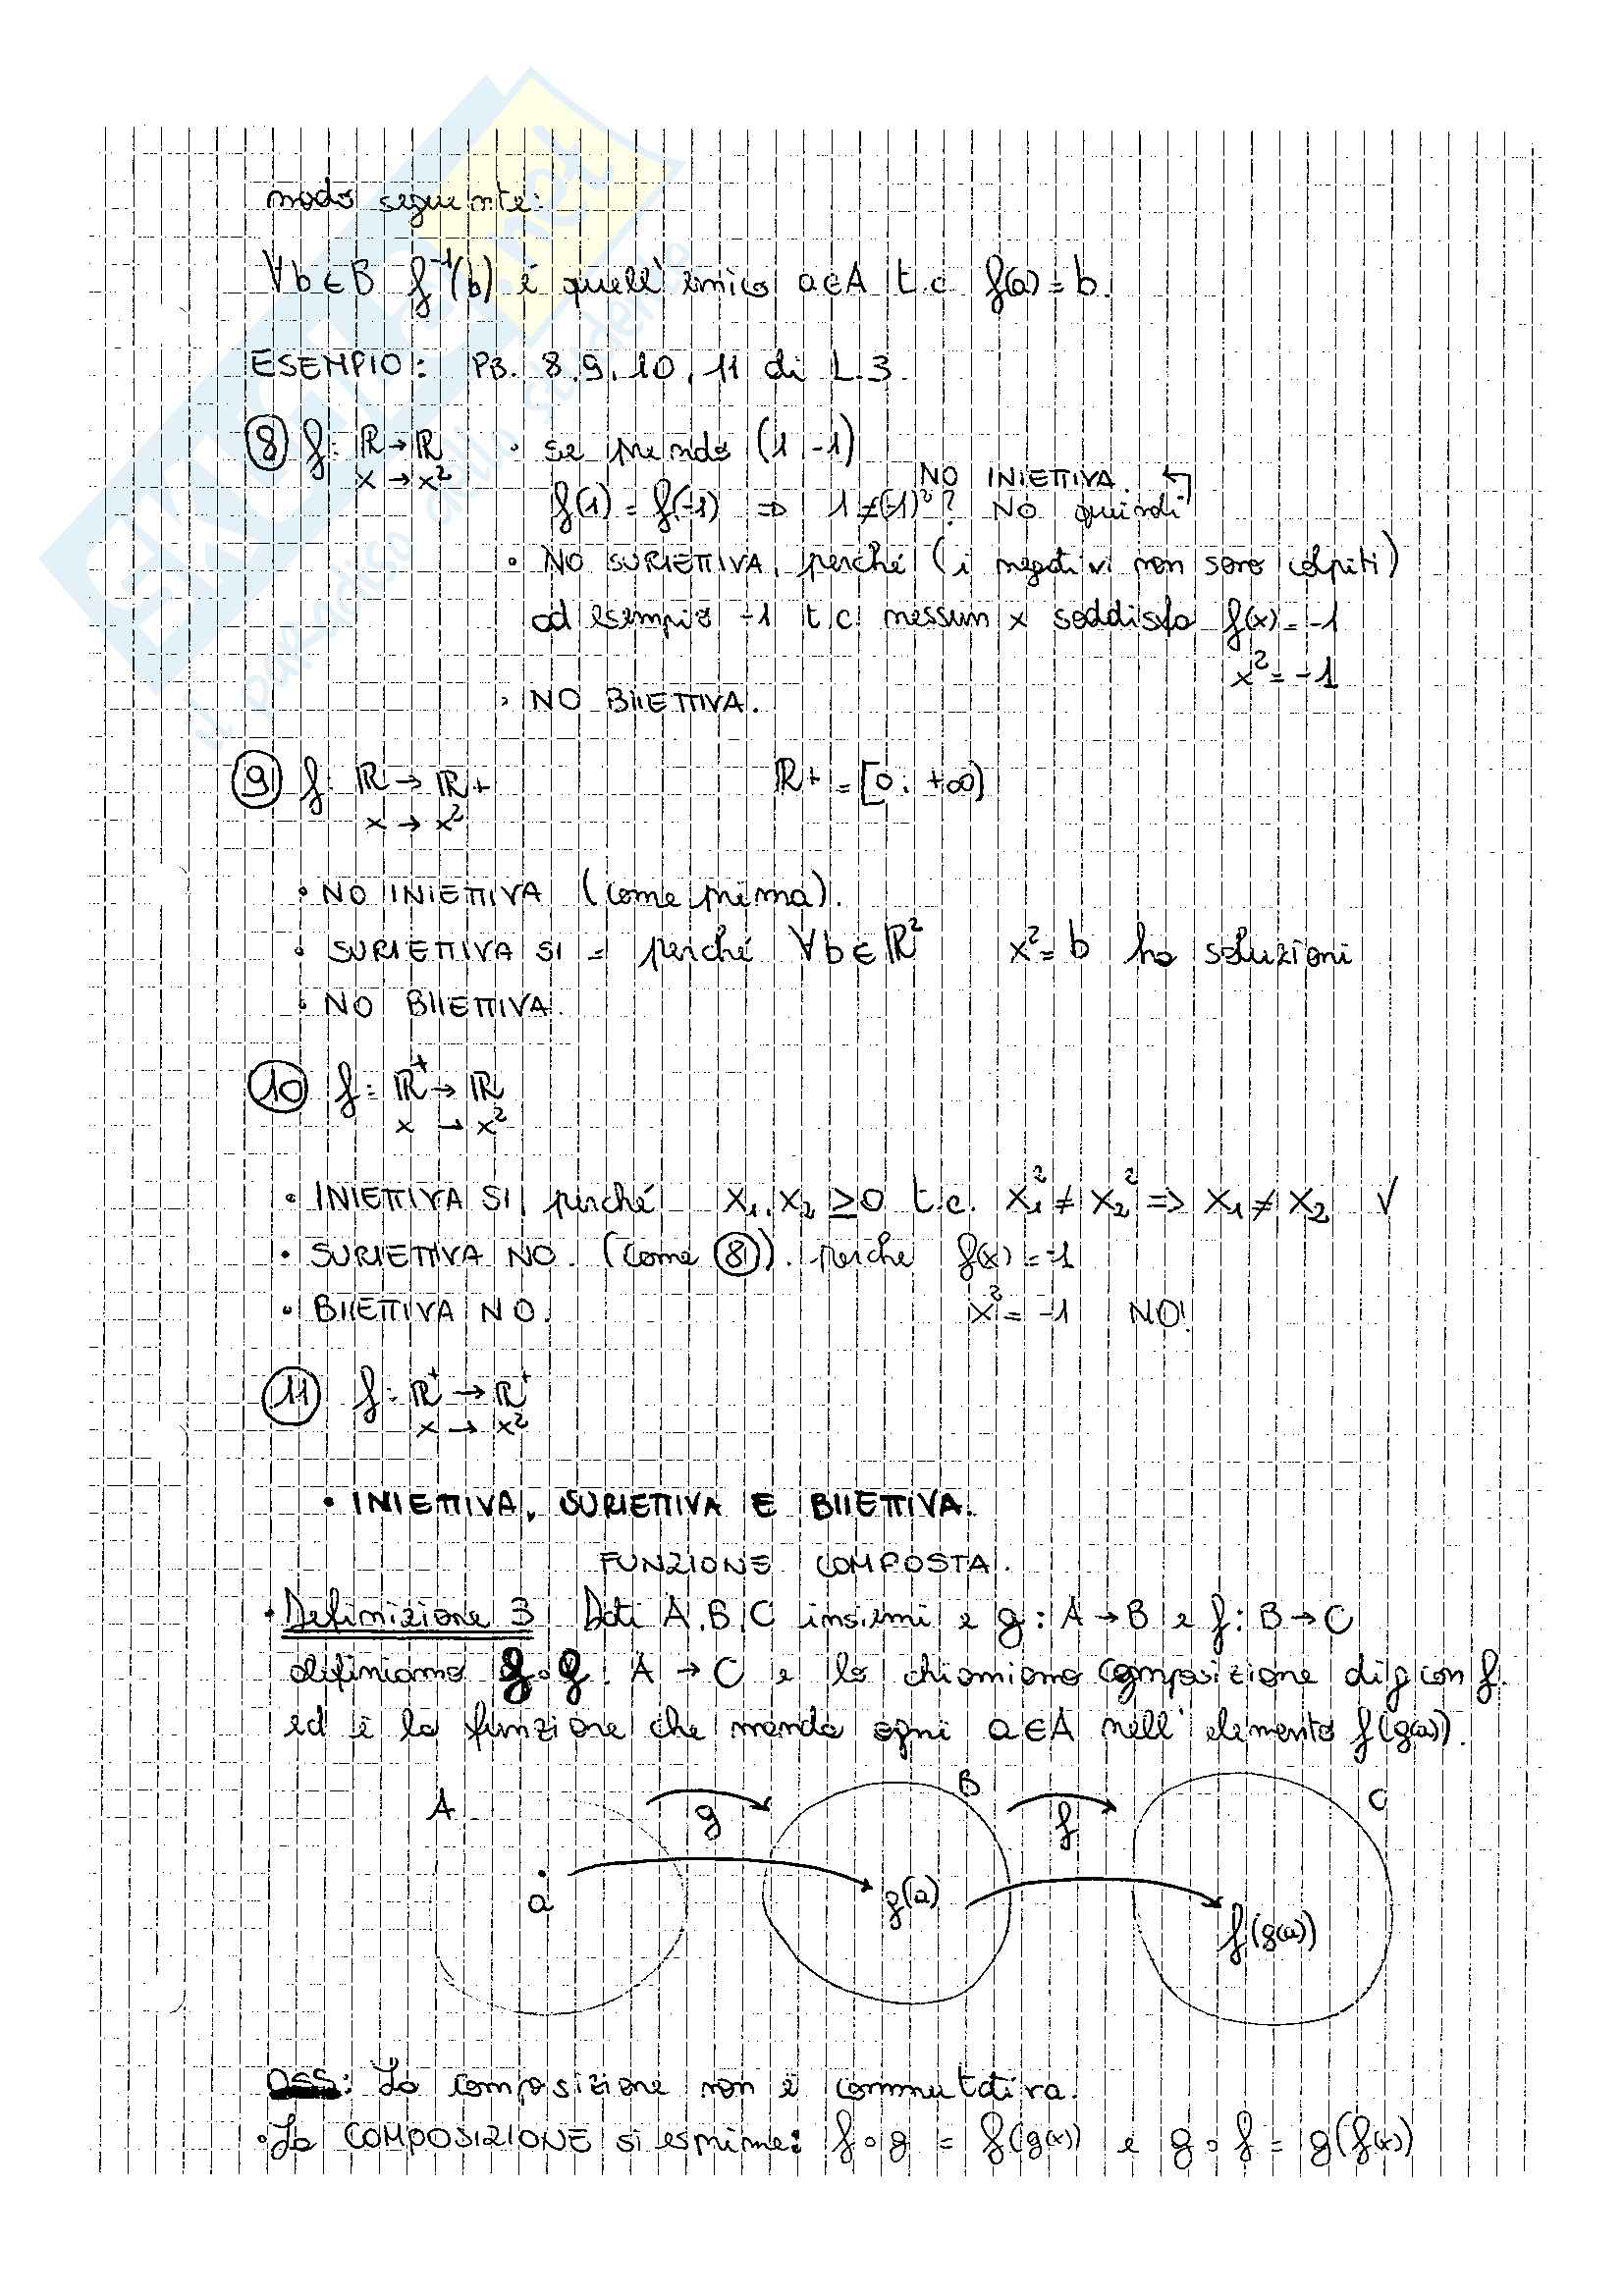 modo seguente:
∀b∈B f⁻¹(b) è quell'unico a∈A t.c. f(a)=b.
ESEMPIO: PB. 8,9,10,11 di L.3.
⑧ f: ℝ→ℝ · se prendo (1,-1)
x→x² NO INIETTIVA.
f(1)=f(-1) ⇒ 1≠(-1)²? NO quindi
· NO SURIETTIVA, perché (i negativi non sono colpiti)
ad esempio -1 t.c. nessun x soddisfa f(x)=-1
x²=-1
· NO BIIETTIVA.
⑨ f: ℝ→ℝ+ ℝ+=[0; +∞)
x→x²
· NO INIETTIVA (come prima).
· SURIETTIVA SI = perché ∀b∈ℝ² x²=b ha soluzioni
· NO BIIETTIVA.
⑩ f: ℝ⁺→ℝ
x→x²
· INIETTIVA SI perché x₁,x₂≥0 t.c. x₁²≠x₂² => x₁≠x₂ √
· SURIETTIVA NO. (come ⑧). perché f(x)=-1
· BIIETTIVA NO. x²=-1 NO!
⑪ f: ℝ⁺→ℝ⁺
x→x²
· INIETTIVA, SURIETTIVA E BIIETTIVA.
FUNZIONE COMPOSTA.
· Definizione 3 Dati A,B,C insiemi e g: A→B e f: B→C
definiamo f∘g: A→C e la chiamiamo composizione di g con f.
ed è la funzione che manda ogni a∈A nell'elemento f(g(a)).
A g B f C
a g(a) f(g(a))
OSS: La composizione non è commutativa.
· La COMPOSIZIONE si esprime: f∘g = f(g(x)) e g∘f = g(f(x))